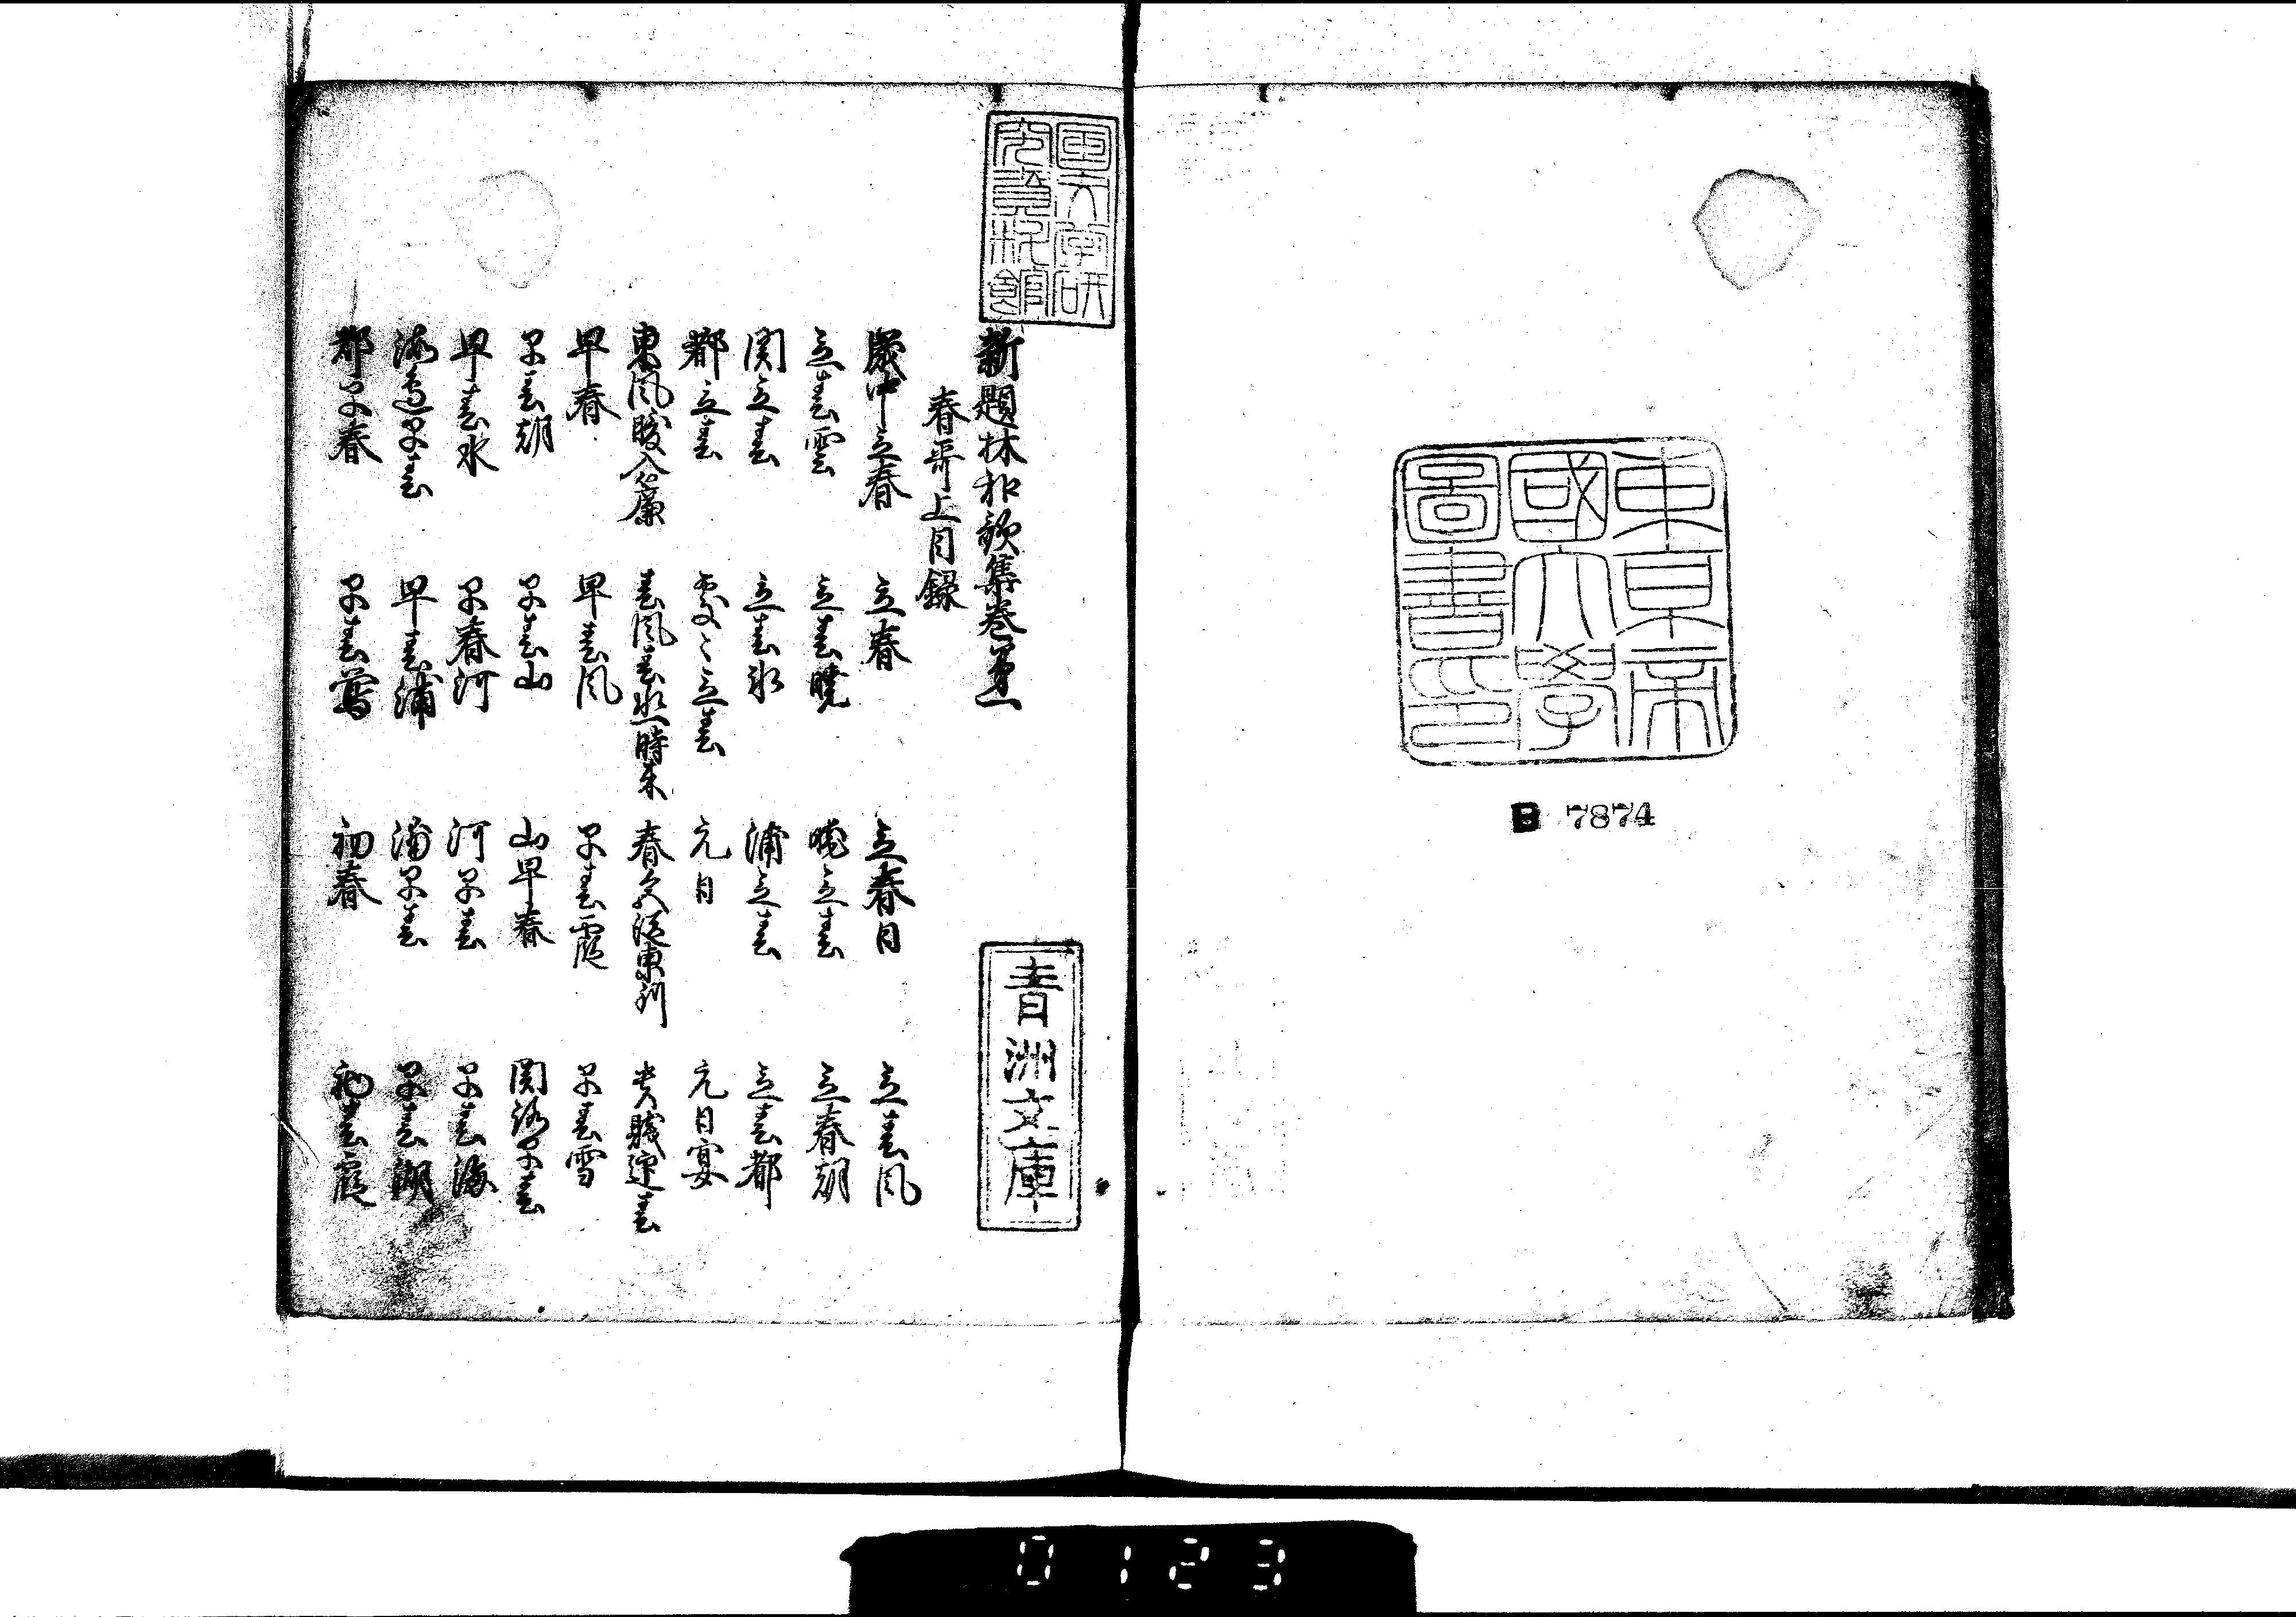 東京帝
國大學
圖書印
B 7874
国文学研
究資料館
新題林和歌集巻第一
春哥上目録
歳中立春 立春 立春日 立春風
立春雲 立春暁 暁立春 立春朝
関立春 立春氷 浦立春 立春都
都立春 処々立春 元日 元日宴
東風暖入簾 春風春水一時来 春久 従東 貴賤迎春
早春 早春風 早春霞 早春雪
早春朝 早春山 山早春 関路早春
早春水 早春河 河早春 早春海
海辺早春 早春浦 浦早春 早春湖
都早春 早春鶯 初春 初春霞
青洲文庫
0123